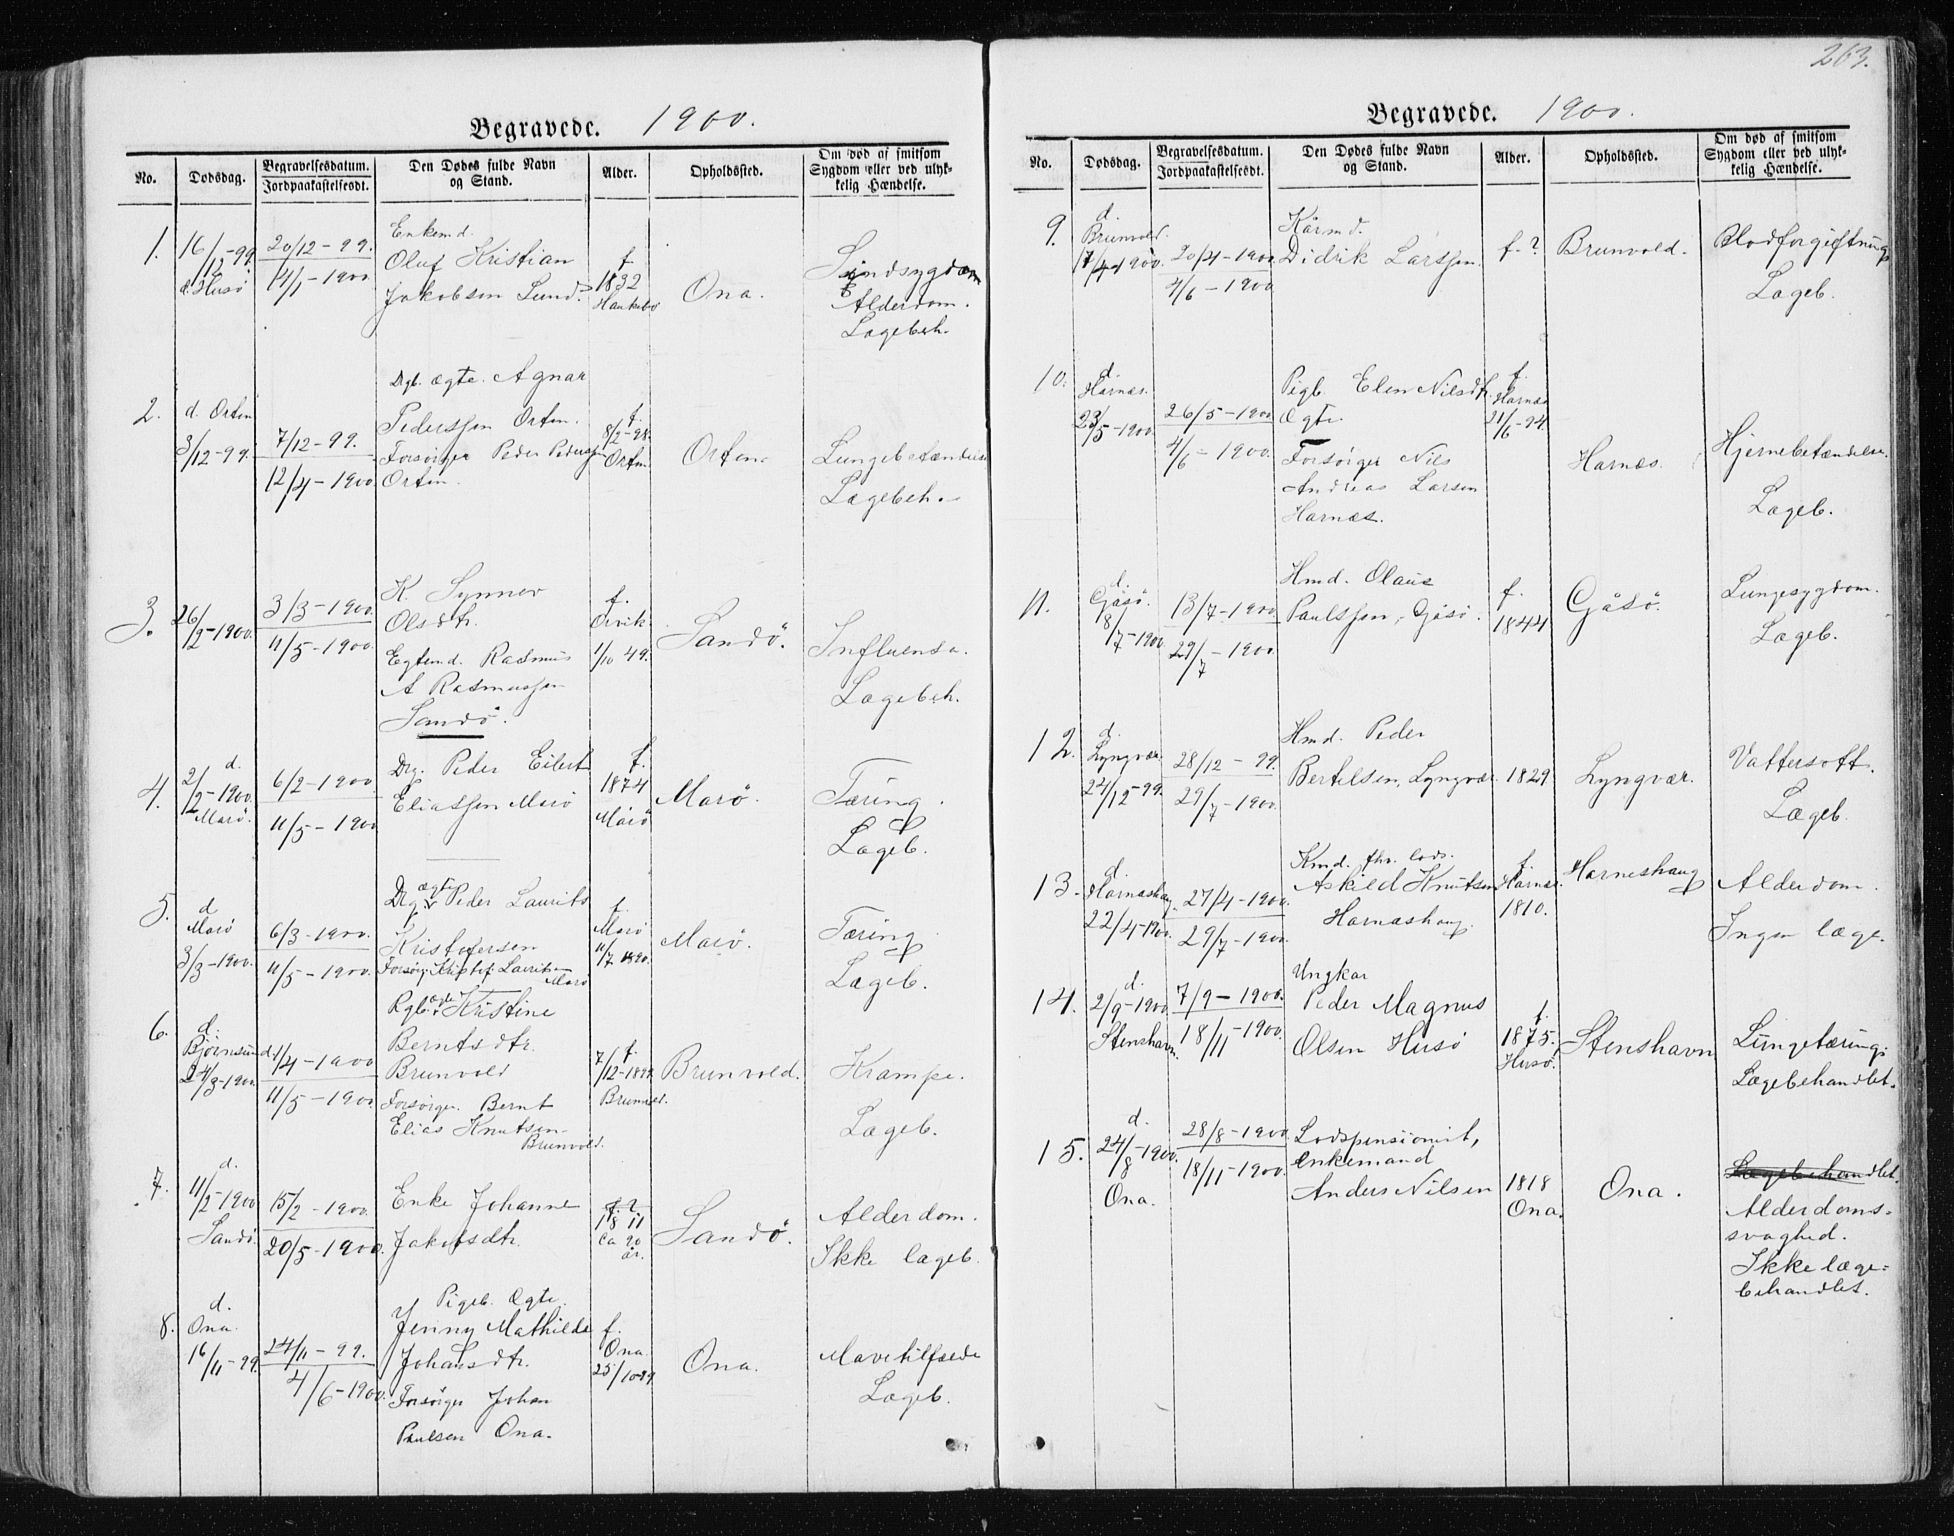 263.
Begravede. 1900.
No.
Dødsdag.
Begravelsesdatum.
Jordpaakastelsesdt.
Den Dødes fulde Navn
og Stand.
Alder.
Opholdssted.
Om død af smitsom
Sygdom eller ved ulyk-
kelig Hændelse.
1.
16/12-99.
d. Husö
20/12-99.
14/1-1900.
Enkemd.
Oluf Kristian
Jakobsen Lund.
f.
1832
Ona.
Alderdom.
Lægebeh.
2.
d. Orten
3/12-99.
7/12-99.
12/4-1900.
Drgb. ægte. Agnar
Pederssen Orten.
Forsörger Peder Pederssen
Orten.
f.
8/2-98.
Orten.
Orten.
Lungebetændelse
Lægebeh.
3.
26/2-1900.
3/3-1900.
11/5-1900.
K. Synnev
Olsdtr.
Egtemd. Rasmus
A Rasmussen
Sandö.
f.
1/10 49.
Sandö.
Influensa.
Lægebeh.
4.
d.
2/2-1900.
Marö.
6/2-1900
11/5-1900
Drg. Peder Eilert
Eliassen Marö
f.
1874
Marö
Marö.
Tæring.
Lægeb.
5.
d
Marö
3/3-1900.
6/3-1900.
11/5-1900.
Drg. ægte Peder Laurits
Kristofersen
Forsörg. Kristof. Lauritsen
Marö
f.
Marö
11/7 1890.
Marö.
Tæring
Lægeb.
6.
d.
Björnsund.
24/3-1900.
1/4-1900
11/5-1900.
Pgb. ægte Kristine
Berntsdtr.
Brunvold
Forsörger. Bernt
Elias Knutsen
Brunvold.
f.
7/12-1899.
Brunvold.
Brunvold.
Krampe.
Lægeb.
7.
d.
11/2-1900
Sandö.
15/2-1900.
20/5-1900.
Enke Johanne
Jakobsdtr.
f?
1811
Ca 90
år.
Sandö.
Alderdom.
Ikke lægeb.
8.
d.
Ona.
16/11-99.
24/11-99.
4/6-1900.
Pigeb. Ægte.
Jenny Mathilde
Johansdtr.
Forsörger Johan
Paulsen Ona.
f.
Ona.
25/10-99.
Ona.
Mavetilfælde
Lægeb.
Begravede. 1900.
No.
Dødsdag.
Begravelsesdatum.
Jordpaakastelsesdt.
Den Dødes fulde Navn
og Stand.
Alder.
Opholdssted.
Om død af smitsom
Sygdom eller ved ulyk-
kelig Hændelse.
9.
d.
Brunvold.
20/4-1900
4/6-1900
Kårmd.
Didrik Larssen.
f.?
Brunvold.
Blodforgiftning
Lægeb.
10.
d.
Harnæs.
23/5-1900.
26/5-1900
4/6-1900.
Pigb Elen Nilsdtr.
Ægte.
Forsörger Nils
Andreas Larsen
Harnæs.
f.
Harnæs
21/6-94.
Harnæs.
Hjernebetændelse.
Lægeb.
11.
d.
Gåsö.
8/7-1900
13/7-1900
29/7-1900.
Hmd. Olaus
Paulssen, Gåsö.
f.
1844
Gåsö.
Lungesygdom.
Lægeb.
12.
d.
Lyngvær.
24/12-99.
28/12-99.
29/7-1900.
Hmd. Peder
Bertelsen, Lyngvær.
1829.
Lyngvær.
Vattersott.
Lægeb.
13.
d.
Harnæshaug.
22/4-1900.
27/4-1900.
29/7-1900.
Kmd. fhv. lods.
Askild Knutsen
Harnæshaug.
f.
Harnæs.
1810.
Harneshaug
Alderdom.
Ingen læge.
14.
d.
2/9-1900.
Stenshavn.
7/9-1900.
18/11-1900.
Ungkar
Peder Magnus
Olsen Husö
f.
1875.
Husö.
Stenshavn
Lungetæring.
Lægebehandlet.
15.
d.
24/8-1900.
Ona.
28/8-1900.
18/11-1900.
Lodspensionist,
enkemand
Anders Nilsen
1818
Ona.
Ona.
Lægebehandlet.
Alderdoms-
svaghed.
Ikke læge-
behandlet.